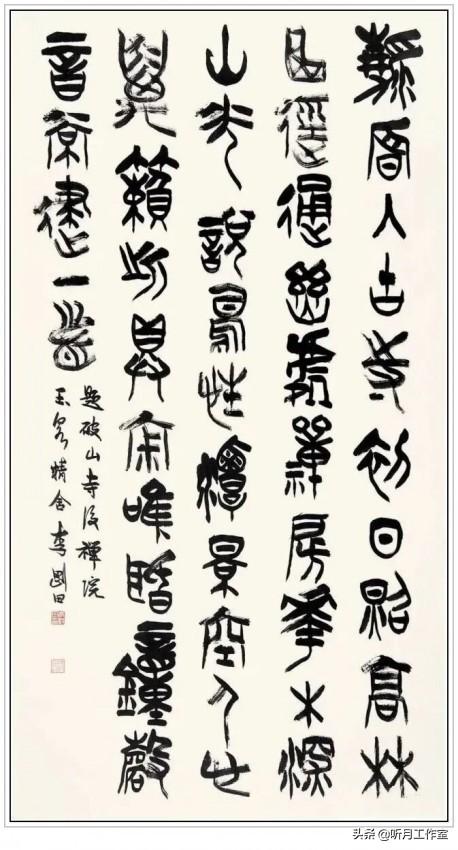 清晨入古寺初日照高林
曲徑通幽處禪房花木深
山光說鳥性潭景空人心
萬籟此具寂唯聞鐘磬
音常建一首
題破山寺後禪院
玉泉精舍李剛田
头条 @听月工作室